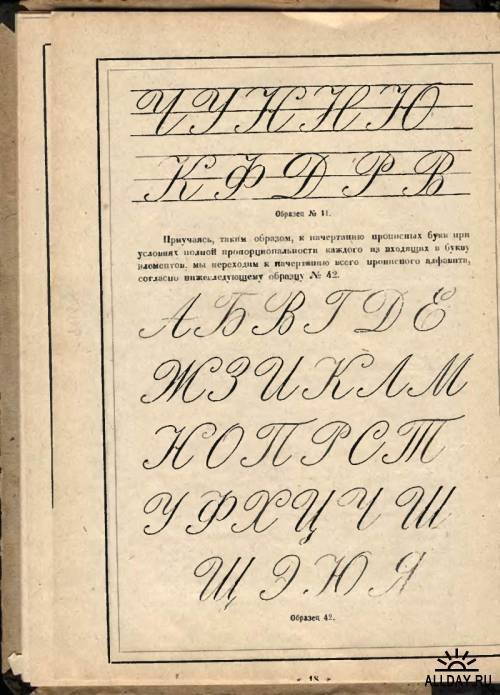 Ч У Н Н Ю
К Ф Д Р В
Образец № 41.
Приучаясь, таким образом, к начертанию прописных букв при
условиях полной пропорциональности каждого из входящих в букву
элементов, мы переходим к начертанию всего прописного алфавита,
согласно нижеследующему образцу № 42.
А Б В Г Д Е
Ж З И К Л М
Н О П Р С Т
У Ф Х Ц Ч Ш
Щ Э Ю Я
Образец 42.
- 18 -
ALLDAY.RU